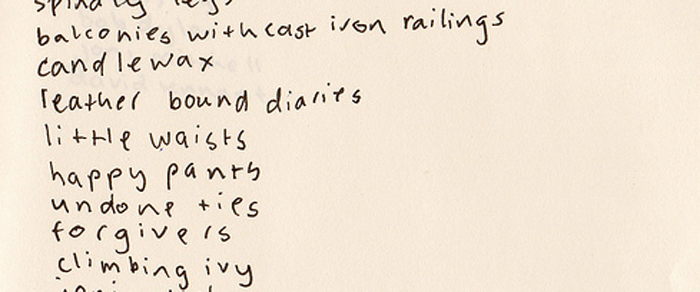 spindly legs
balconies with cast iron railings
candlewax
leather bound diaries
little waists
happy pants
undone ties
forgivers
climbing ivy